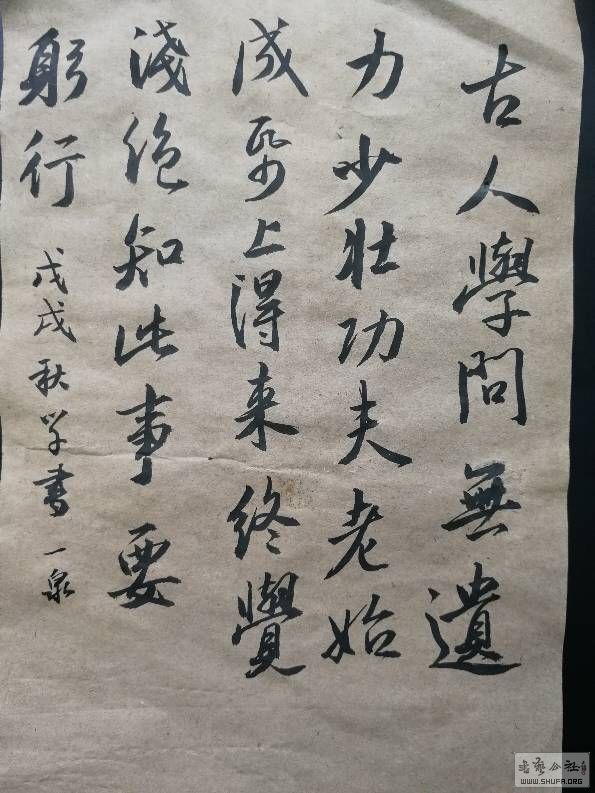 古人學問無遺
力少壮功夫老始
成帋上得来終覺
淺絶知此事要
躬行
戊戌秋学書 一泉
書藝公社
WWW.SHUFA.ORG